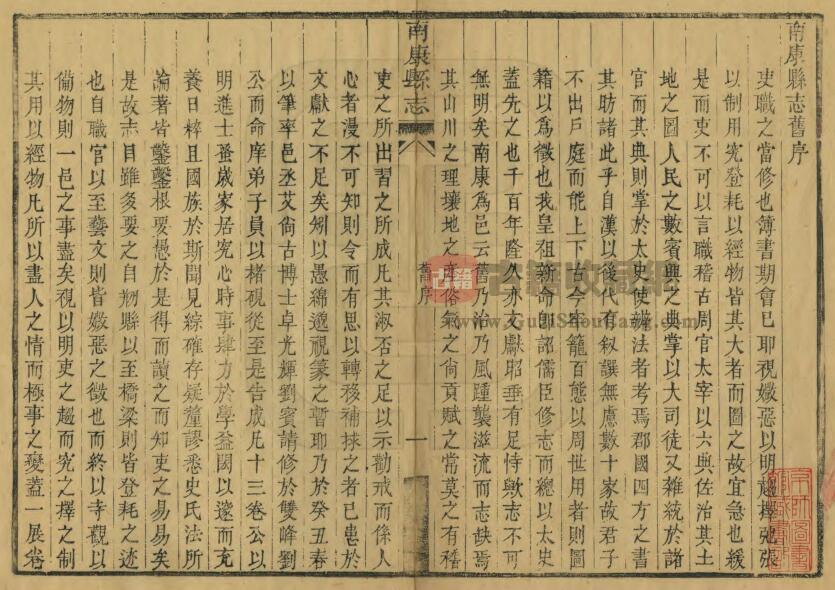 南康縣志舊序
吏職之當修也簿書期會已耶視媺惡以明趨擇弛張
以制用究登耗以經物皆其大者而圖之故宜急也緩
是而吏不可以言職稽古周官太宰以六典佐治其土
地之圖人民之數賓興之典掌以大司徒又雜統於諸
官而其典則掌於太史使辨法者考焉郡國四方之書
其昉諸此乎自漢以後代有叙譔無慮數十家故君子
不出戶庭而能上下古今牢籠百態以周世用者則圖
籍以為徵也我皇祖新命即詔儒臣修志而總以太史
蓋先之也千百年隆久亦文獻昭垂有足恃歟志不可
無明矣南康為邑云舊乃治乃風踵襲滋流而志缺焉
其山川之理壤地之俗氣之尙貢賦之常莫之有稽
南康縣志
舊序
一
吏之所出習之所成凡其淑否之足以示勸戒而係人
心者漫不可知則令而有思以轉移補捄之者已患於
文獻之不足矣矧以愚綿邈視篆之暫耶乃於癸丑春
以筆率邑丞艾尙古博士卓光輝劉賓請修於雙峰劉
公而命庠弟子員以楮硯從至是告成凡十三卷公以
明進士蚤歲家居究心時事肆力於學益閎以邃而充
養日粹且國族於斯聞見綜確存疑釐謬悉史氏法所
論著皆鑿鑿根要愚於是得而讀之而知吏之易易矣
是故志目雖多要之自剏縣以至橋梁則皆登耗之迹
也自職官以至藝文則皆媺惡之徵也而終以寺觀以
備物則一邑之事盡矣視以明吏之趨而究之擇之制
其用以經物凡所以盡人之情而極事之變蓋一展卷
古籍
古籍收藏網
www.GuJiShouCang.com